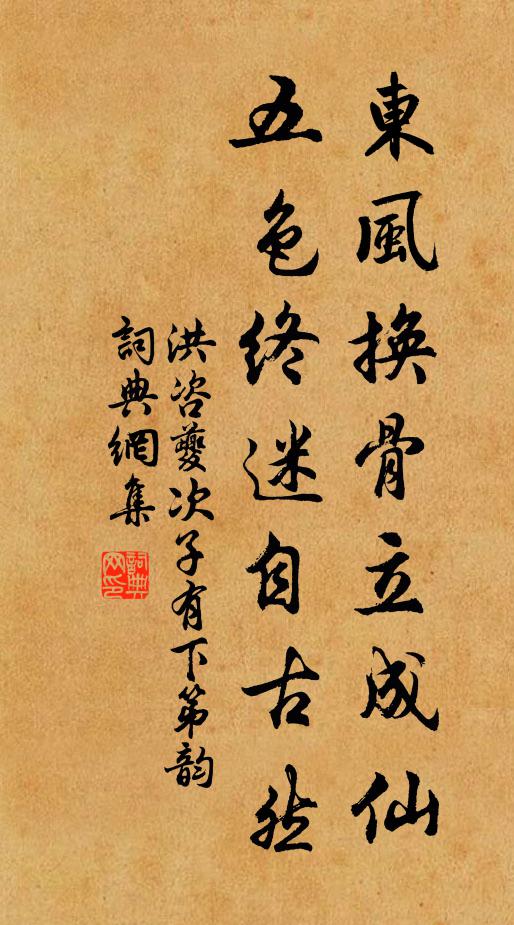 東風換骨立成仙
五色終迷自古然
洪咨夔次子有下第韵
詞典網集
詞典網印